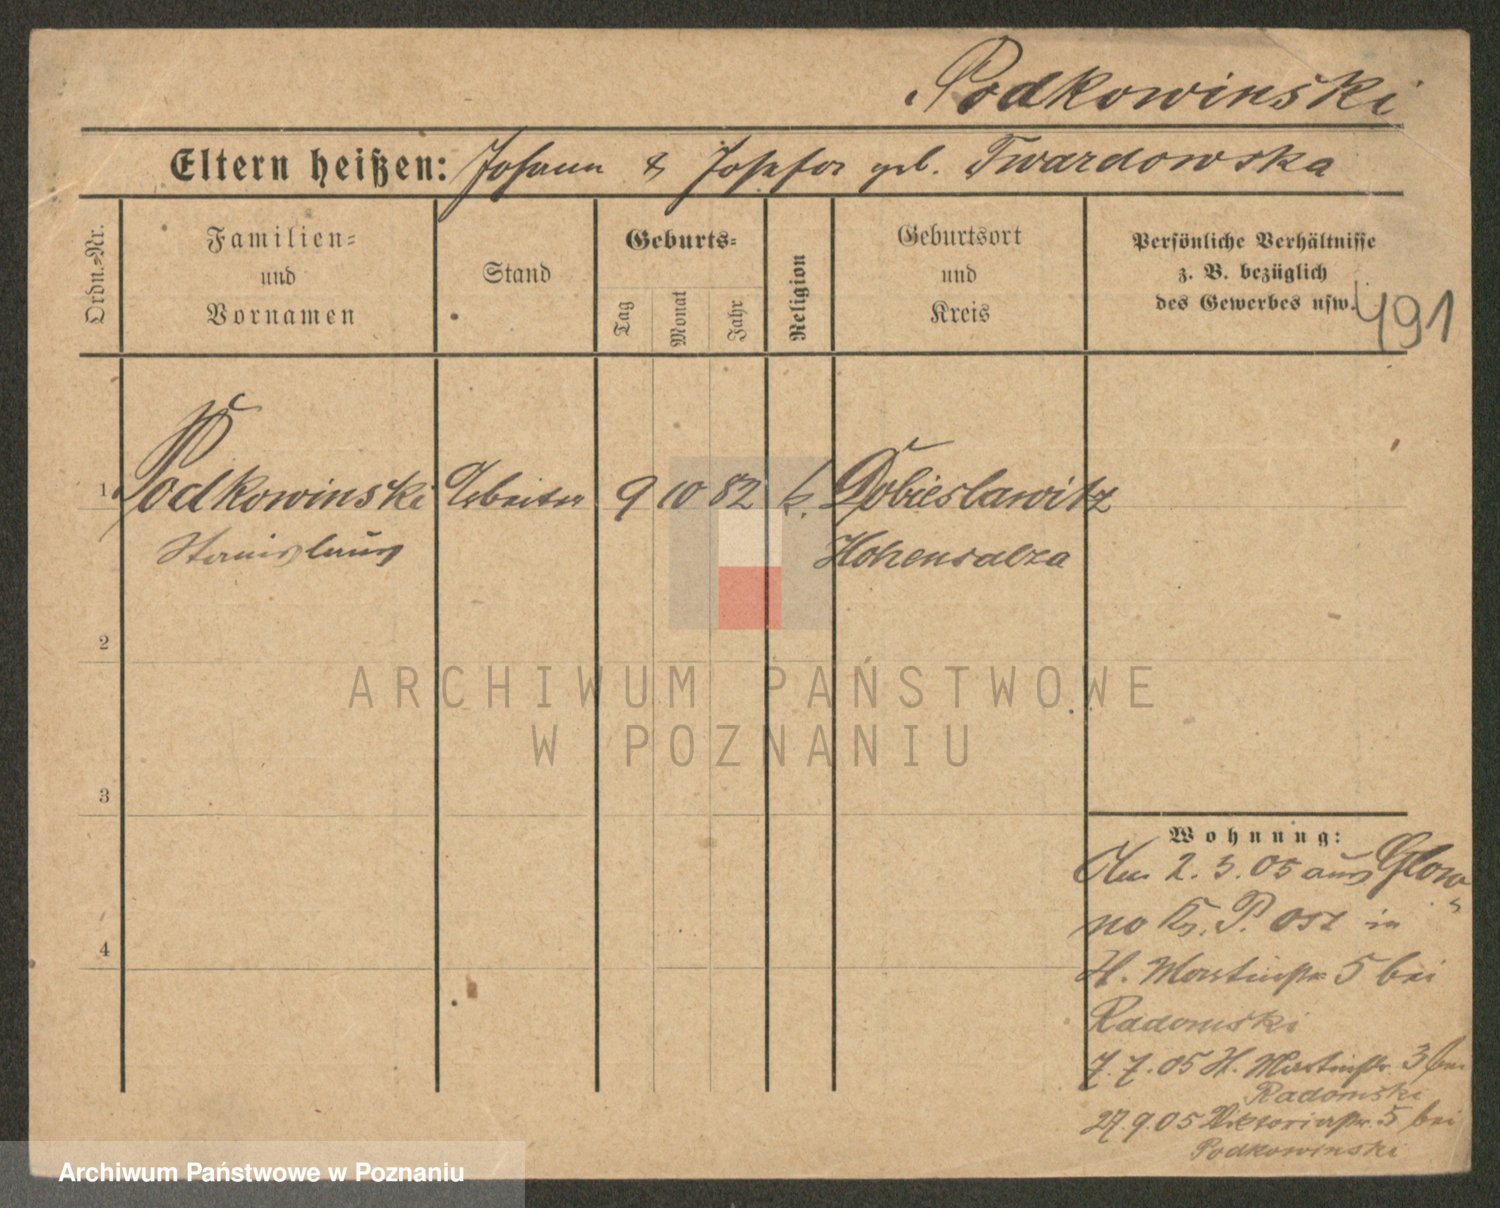 Podkowinski
Eltern heißen: Johann & Josefa geb. Twardowska
Ordn.=Nr.
Familien=
und
Vornamen
Stand
Geburts=
Tag
Monat
Jahr
Religion
Geburtsort
und
Kreis
Persönliche Verhältnisse
z. B. bezüglich
des Gewerbes usw.
491
1 Podkowinski Arbeiter 9 10 82 k. Dobieslawitz
Stanislaus Hohensalza
2
3
4
ARCHIWUM PAŃSTWOWE
W POZNANIU
Wohnung:
Am 2. 3. 05 aus Glow
no Kr. P. Ost in
H. Martinstr 5 bei
Radomski
7. 7. 05 H. Martinstr. 3 bei
Radomski
27. 9. 05 Viktoriastr. 5 bei
Podkowinski
Archiwum Państwowe w Poznaniu